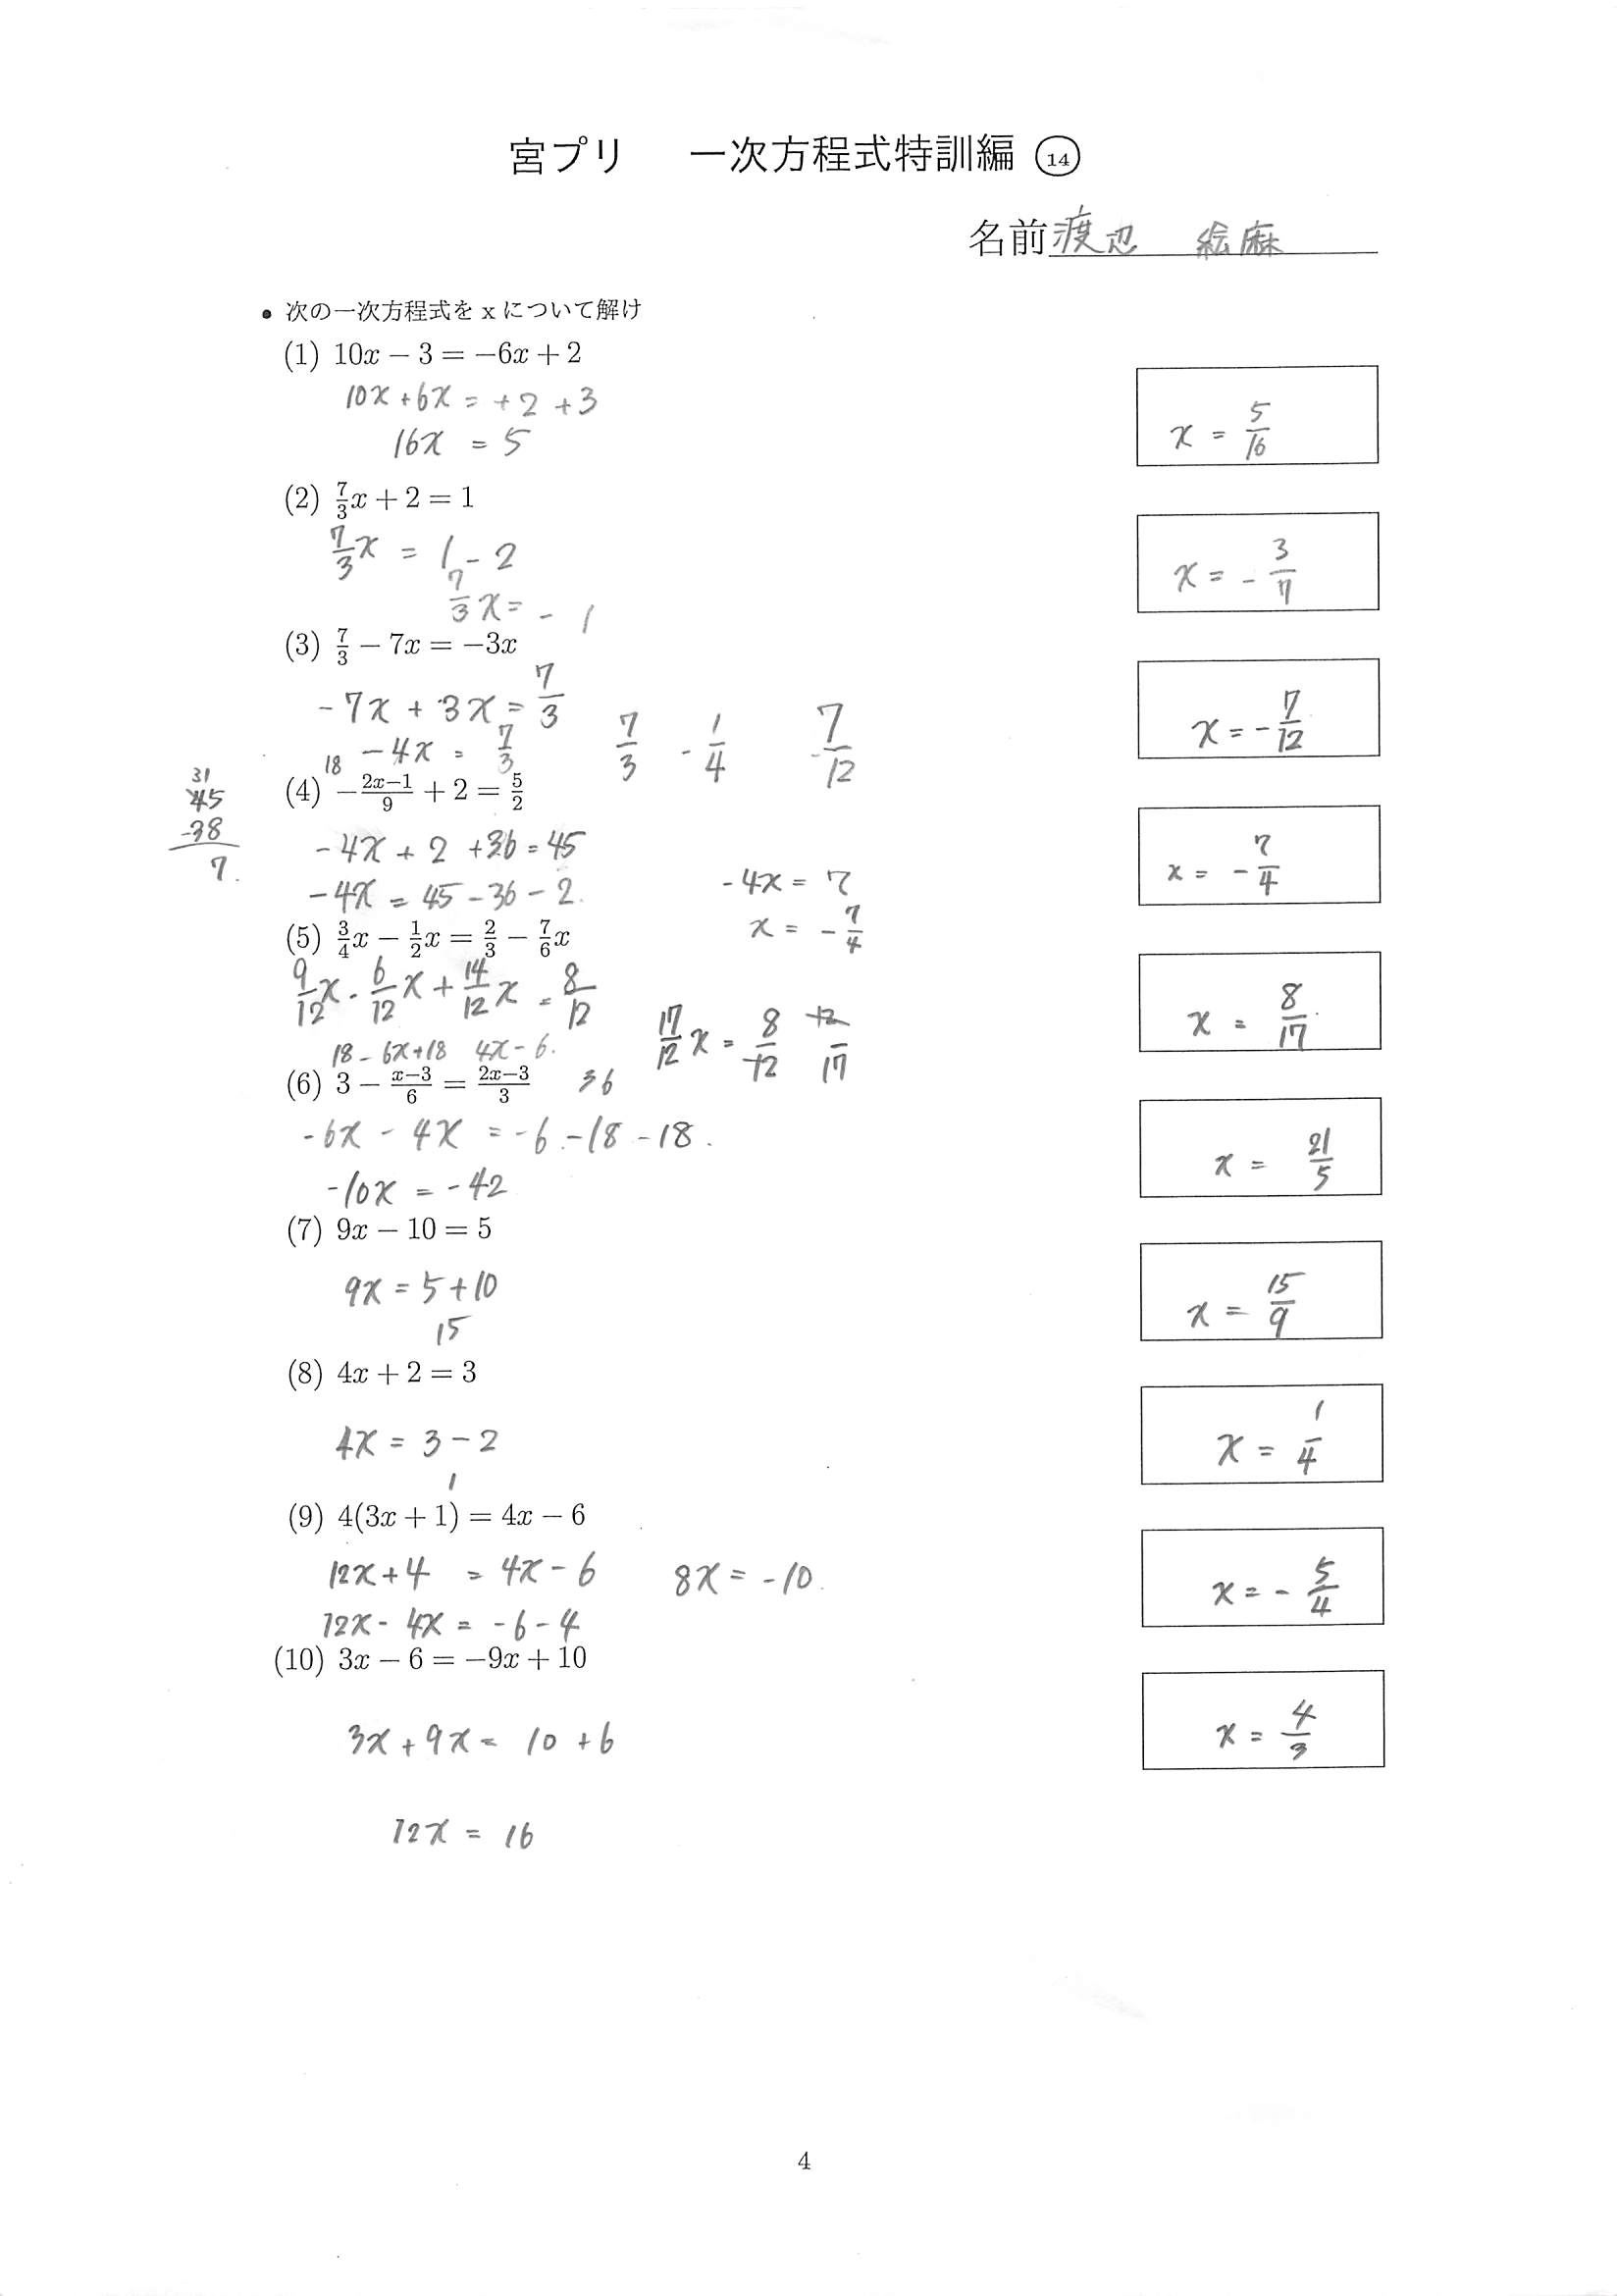 宮プリ 一次方程式特訓編 ⑭
名前 渡辺 絵麻
• 次の一次方程式を x について解け
(1) 10x − 3 = −6x + 2
10x + 6x = +2 +3
16x = 5
x = 5/16
(2) 7/3 x + 2 = 1
7/3 x = 1 − 2
7/3 x = − 1
x = − 3/7
(3) 7/3 − 7x = −3x
−7x + 3x = 7/3
−4x = 7/3
7/3 − 1/4 − 7/12
x = − 7/12
18
(4) − (2x−1)/9 + 2 = 5/2
31
45
−38
7.
−4x + 2 +36 = 45
−4x = 45 − 36 − 2
−4x = 7
x = − 7/4
x = − 7/4
(5) 3/4 x − 1/2 x = 2/3 − 7/6 x
9/12 x − 6/12 x + 14/12 x = 8/12
17/12 x = 8/12 12/17
x = 8/17
18 − 6x+18 4x − 6
(6) 3 − (x−3)/6 = (2x−3)/3 36
−6x − 4x = −6 − 18 − 18
−10x = −42
x = 21/5
(7) 9x − 10 = 5
9x = 5 + 10
15
x = 15/9
(8) 4x + 2 = 3
4x = 3 − 2
1
x = 1/4
(9) 4(3x + 1) = 4x − 6
12x + 4 = 4x − 6
12x − 4x = −6 − 4
8x = −10
x = − 5/4
(10) 3x − 6 = −9x + 10
3x + 9x = 10 + 6
12x = 16
x = 4/3
4